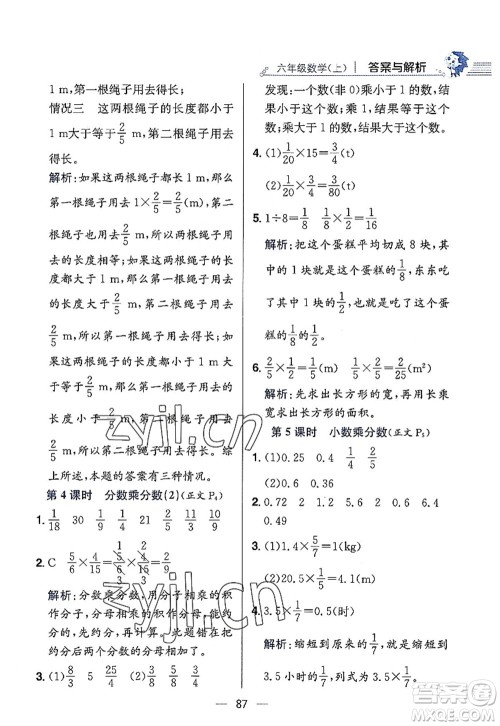 六年级数学(上) 答案与解析
第一根绳子和第二根绳子用去的同样长。
情况三 这两根绳子的长度都小于
1 m大于等于2/5 m,第二根绳子用去
得长。
解析:如果这两根绳子的长度等于
1 m,那么1×2/5=2/5(m),第二
根绳子用去的长度与第一根绳子用
去的长度相等;如果这两根绳子的
长度大于1 m,那么第一根绳子用去
的长度大于2/5 m,第二根绳子用去
2/5 m,所以第一根绳子用去得长。
如果这两根绳子的长度都小于1 m
大于等于2/5 m,那么第一根绳子用
去的长度小于2/5 m,第二根绳子用
去2/5 m,所以第二根绳子用去得长。综
上所述,本题的答案有三种情况。
第4课时 分数乘分数(2)(正文P₄)
1. 1/18 30 3/10 21/40 2/11 10/9
2. C 5/6×4/15=5/6×4/15=2/9
解析:分数乘分数,用分子相乘的积
作分子,分母相乘的积作分母,能约
分的先约分。计算时注意是分子与
分母约分,而不是两个分数的分子
约分后两个分数的分母相加!
3. (1)5/8 5 5/4 (2)8/5 4/5 1/5
发现:一个数(非0)乘小于1的数,
结果小于这个数;乘1,结果等于这
个数;乘大于1的数,结果大于这个数。
4. (1)1/20×15=3/4(t)
(2)1/20×3/4=3/80(t)
5. 1÷8=1/8 1/8×1/2=1/16
解析:把这个蛋糕平均切成8块,其
中的1块是这个蛋糕的1/8,东东吃
了其中1块的1/2,就是吃了这个蛋糕
的1/8的1/2。
6. 2/5×1/2=1/5(m) 2/5×1/5=2/25(m²)
解析:先求出长方形的宽,再用长乘
宽求出长方形的面积。
第5课时 小数乘分数(正文P₅)
1. (1)0.25 0.4 (2)0.75 0.3
2. 0.72 2 0.9 1.2 0.6
0.49
3. (1)1.4×5/7=1(kg)
(2)20.5×1/5=4.1(m)
4. 3.5×1/7=0.5(时)
解析:缩短到原来的1/7,就是缩短
到3.5小时的1/7,列式为3.5×1/7。
87
zyjl.cn
zyjl.cn
答案圈
MXQE.COM